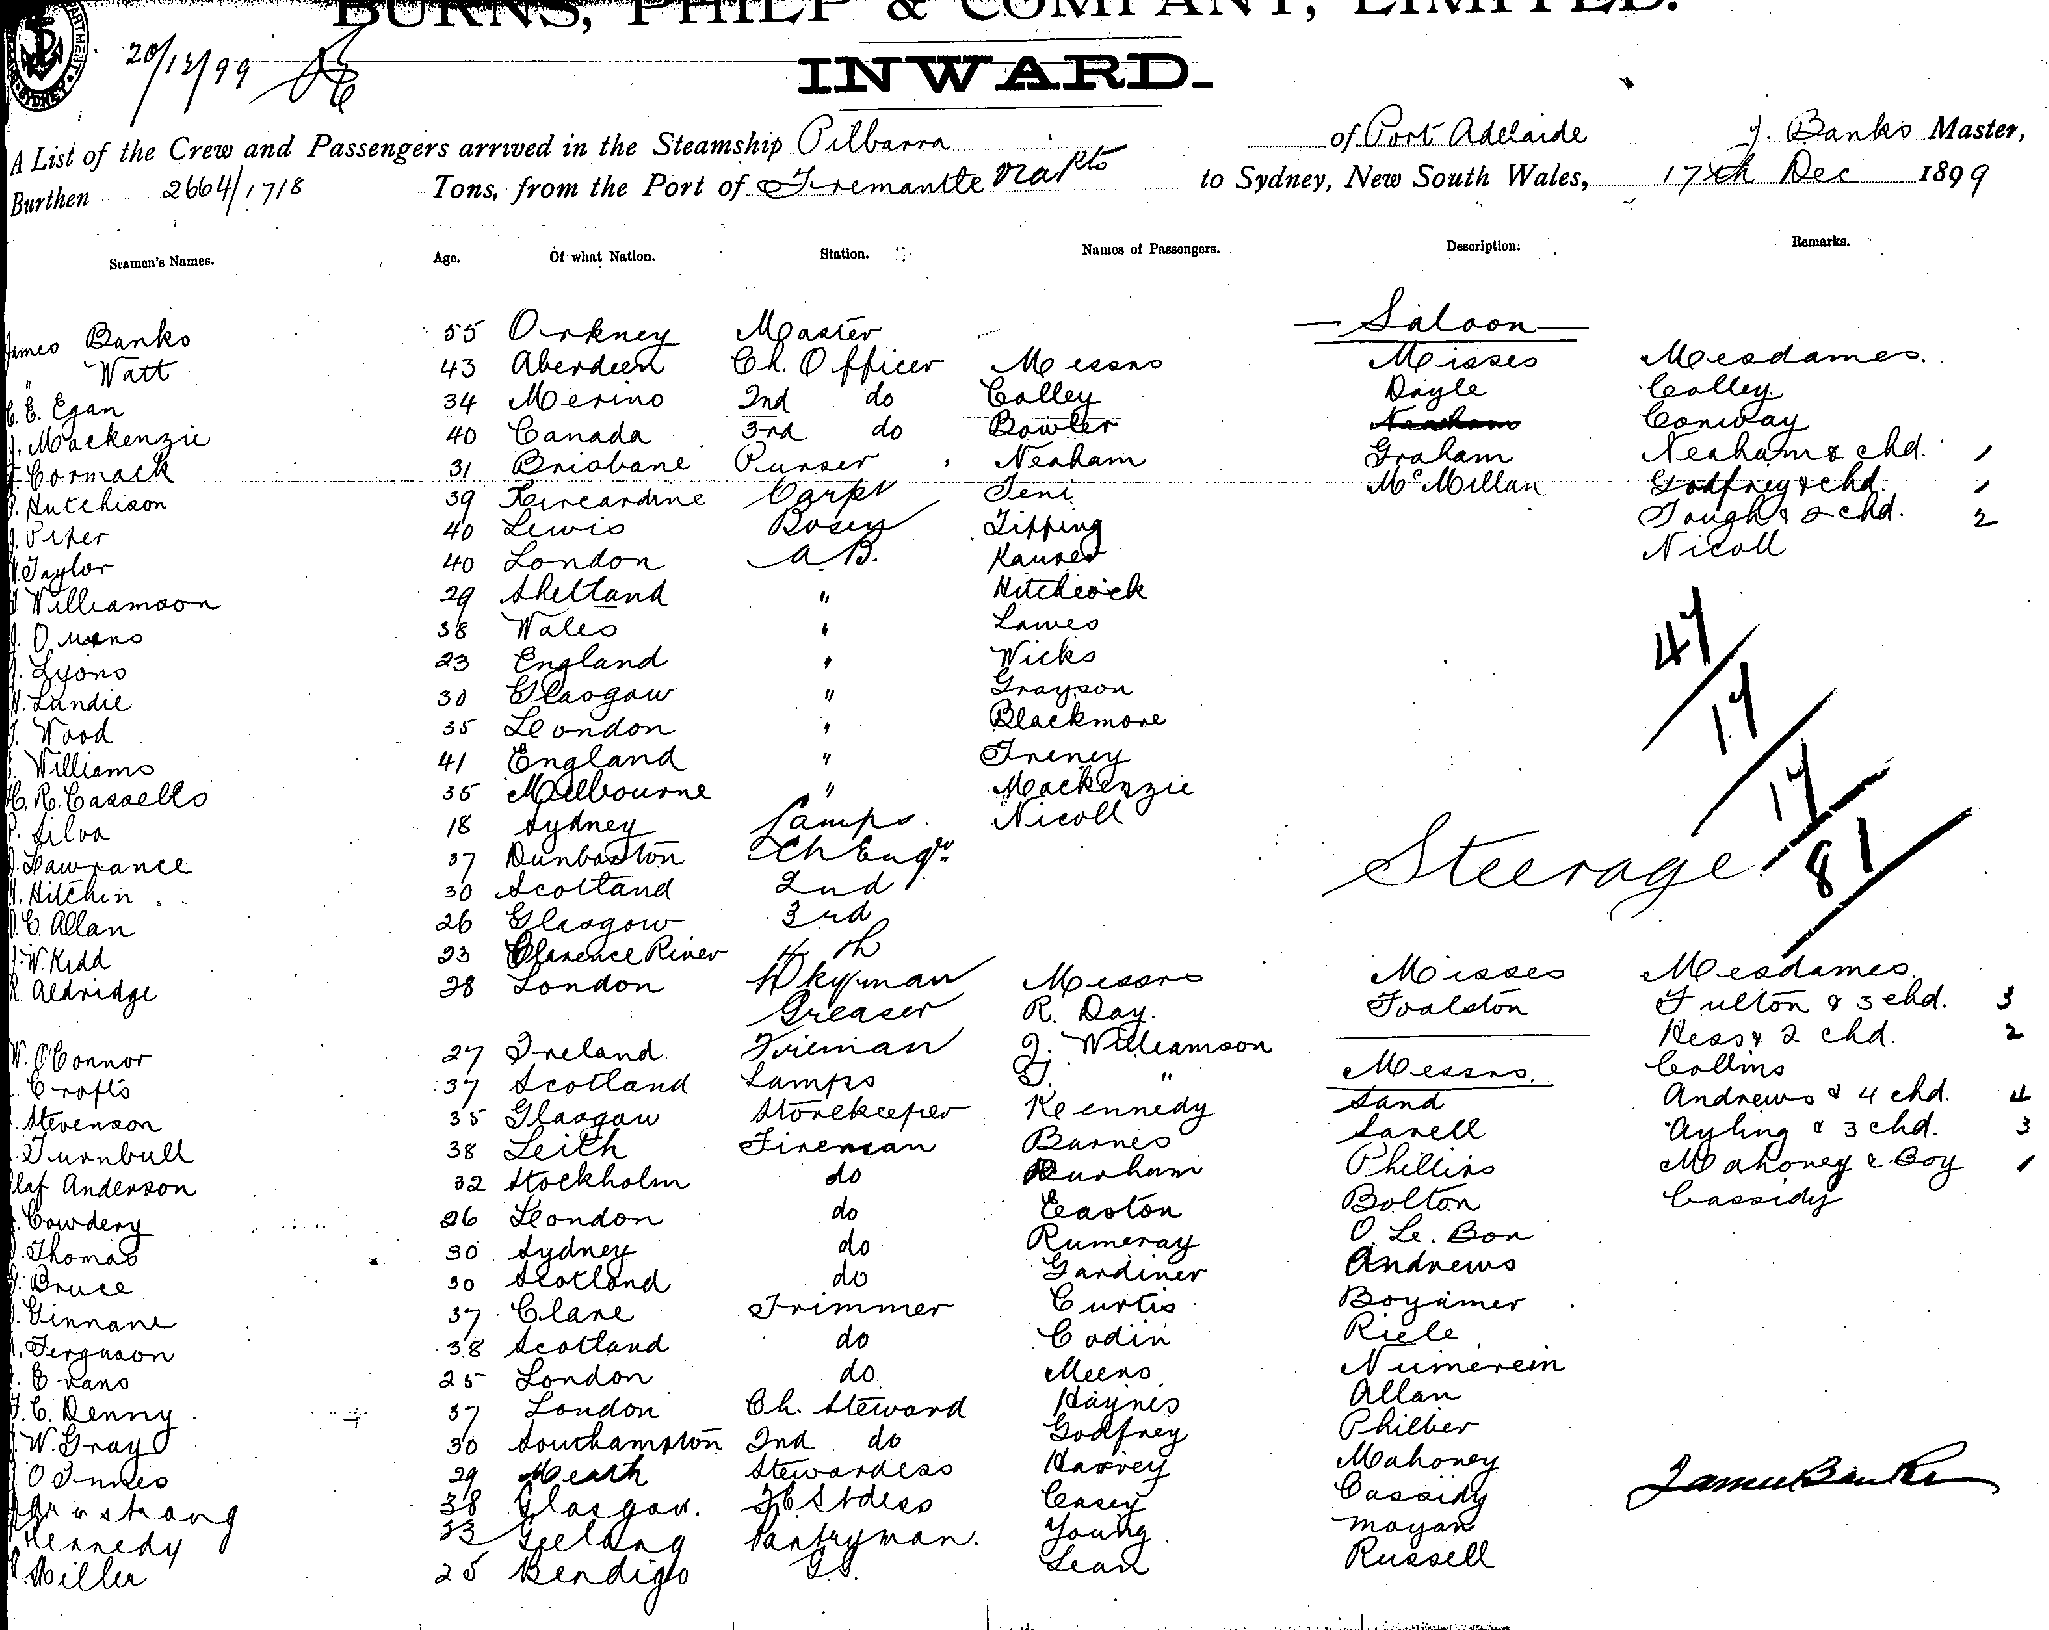 BURNS, PHILP & COMPANY, LIMITED.
INWARD.
20/12/99
A List of the Crew and Passengers arrived in the Steamship Pilbarra of Port Adelaide J. Banks Master,
Burthen 2664/1718 Tons, from the Port of Fremantle via Pts to Sydney, New South Wales, 17th Dec 1899
Seamen's Names. Age. Of what Nation. Station. Names of Passengers. Description. Remarks.
Saloon
James Banks 55 Orkney Master
" Watt 43 Aberdeen Ch. Officer Messrs Misses Mesdames.
C. E. Egan 34 Merino 2nd do Colley Doyle Colley
J. Mackenzie 40 Canada 3rd do Bowler Conway
Cormack 31 Brisbane Purser Neaham Graham Neaham & chd. 1
Hutchison 39 Kincardine Carptr Teni McMillan Godfrey & chd. 1
Piper 40 Lewis Bosen Tipping Tough & 2 chd. 2
Taylor 40 London A.B. Nicoll
Williamson 29 Shetland " Hitchcock
Owens 38 Wales " Lawes
Lyons 23 England " Wicks
Landie 30 Glasgow " Grayson
Wood 35 London " Blackmore
Williams 41 England " Treney
R. Cassells 35 Melbourne " Mackenzie
Silva 18 Sydney Lamps. Nicoll
47/17/17/81
Lawrance 37 Dunbarton Ch Engr
Steerage
Hitchin 30 Scotland 2nd
C. Allan 26 Glasgow 3rd
W. Kidd 23 Clarence River 4th
R. Aldridge 28 London Dkyman Messrs Misses Mesdames.
Greaser R. Day. Foalston Fulton & 3 chd. 3
Hess & 2 chd. 2
W. O'Connor 27 Ireland Fireman J. Williamson Collins
Crofts 37 Scotland Lamps T. " Messrs. Andrews & 4 chd. 4
Stevenson 35 Glasgow Storekeeper Kennedy Sand Ayling & 3 chd. 3
Turnbull 38 Leith Fireman Barnes Sarell Mahoney & Boy 1
Olaf Anderson 32 Stockholm do Durham Phillips Cassidy
Cowdery 26 London do Easton Bolton
Thomas 30 Sydney do Rumeray O. Le. Bon
Bruce 30 Scotland do Gardiner Andrews
Ginnane 37 Clare Trimmer Curtis
Ferguson 38 Scotland do Codin Riele
Evans 25 London do Meens Numerein
C. Denny 37 London Ch. Steward Haynes Allan
W. Gray 30 Southampton 2nd do Godfrey Philber
O. Innes 29 Meath Stewardess Harvey Mahoney
Armstrong 38 Glasgow. Stdess Casey Cassidy
Kennedy 33 Geelong Pantryman. Young Moyan
Miller 25 Bendigo Lean Russell
James Banks